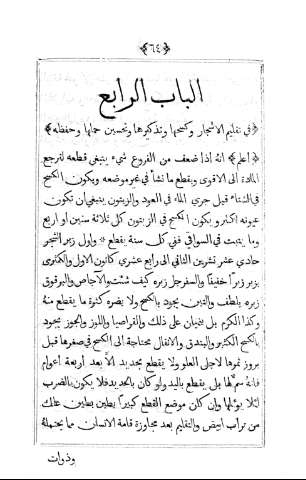 ﴿٦٤﴾
الباب الرابع
﴿في تقليم الاشجار وكسحها وتذكيرها وتحسين حملها وحفظه﴾
﴿اعلم﴾ انه اذا ضعف من الفروع شيء ينبغي قطعه لترجع
المادة الى الاقوى ويقطع ما نشأ في غير موضعه ويكون الكسح
في الشتاء قبل جري الماء في العود والزيتون ينبغي ان تكون
عيونه اكثر ويكون الكسح في الزيتون كل ثلاثة سنين او اربع
وما ينبت في السواقي ففي كل سنة يقطع واول زبر الشجر
حادي عشر تشرين الثاني الى رابع عشري كانون الاول والكمثرى
يزبر زبرًا خفيفًا والسفرجل زبره كيف شئت والاجاص والبرقوق
زبره بلطف والتين يجود بالكسح ولا يضره كثرة ما يقطع منه
وكذا الكرم بل ينميان على ذلك والقراصيا واللوز والجوز يجود
بالكسح الكثير والبندق والانفال محتاجة الى الكسح في صغرها قبل
بروز ثمرها لاجل العلو ولا يقطع بحديد الا بعد اربعة اعوام
فانه سم لها بل يقطع باليد ولو كان بالحديد فلا يكون بالضرب
لئلا يؤلمها وان كان موضع القطع كبيرًا يطين بطين علك
من تراب ابيض والتقليم بعد مجاوزة قامة الانسان مما يحتمله
وذوات